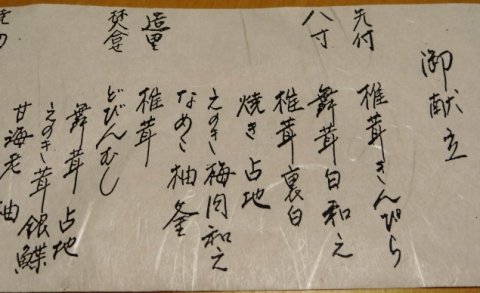 御献立
先付
椎茸きんぴら
八寸
舞茸白和え
椎茸裏白
焼き占地
えのき梅肉和え
なめこ柚釜
造里
椎茸
焚合
どびんむし
舞茸 占地
えのき茸 銀鰈
甘海老 柚